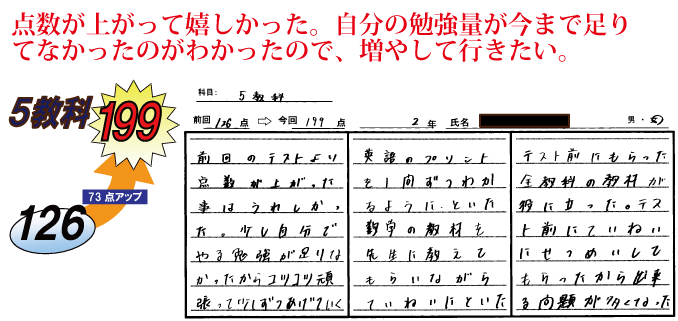 点数が上がって嬉しかった。自分の勉強量が今まで足り
てなかったのがわかったので、増やして行きたい。
科目: 5教科
前回 126点 ⇨ 今回 199 点 2 年 氏名 男・女
5教科
199
73 点アップ
126
前回のテストより
点数が上がった
事はうれしかっ
た。少し自分で
やる勉強が足りな
かったからコツコツ頑
張って少しずつあげていく
英語のプリント
を1問ずつわか
るように、といた
数学の教材を
先生に教えて
もらいながら
ていねいにといた
テスト前にもらった
全教科の教材が
役に立った。テス
ト前にていねい
にせつめいして
もらったから出来
る問題が多くなった